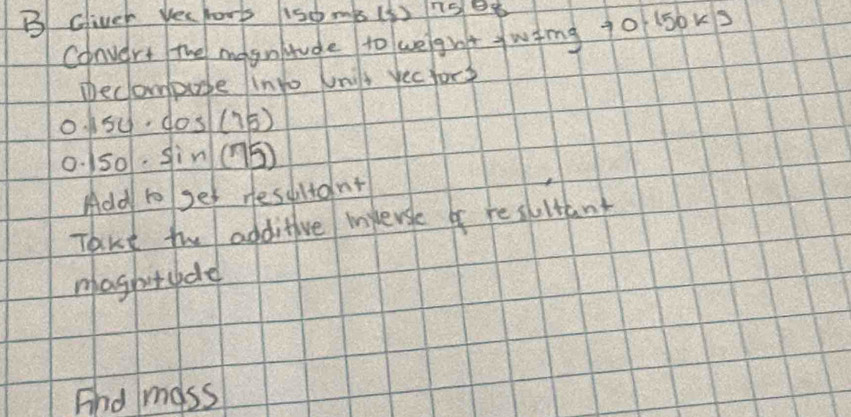 B Given vectors 150
Convert the magnitude to weight → w=mg → 0.150 kg
Decompose into unit vectors
0.150 · cos (75)
0.150 · sin (75)
Add to get resultant
Take the additive inverse of resultant
magnitude
Find mass